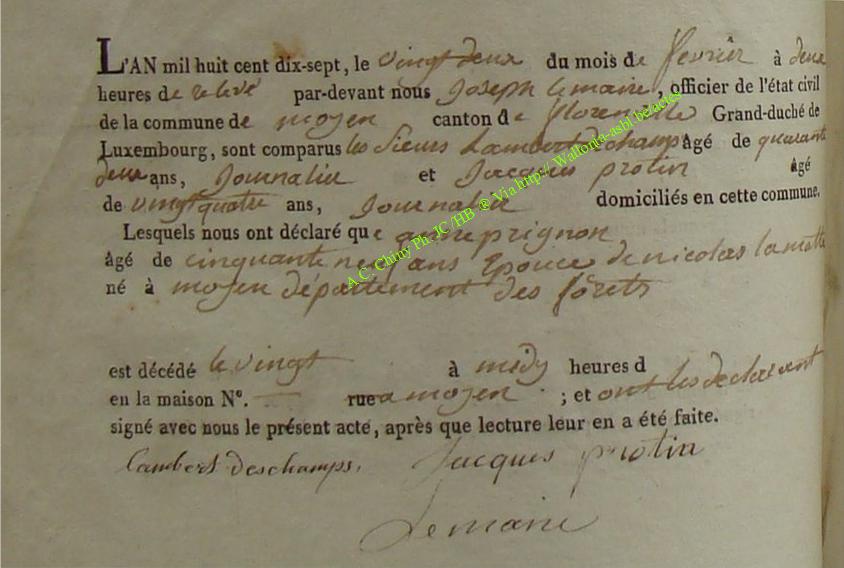 L'AN mil huit cent dix-sept, le vingt deux du mois de fevrier à deux
heures de relevé par-devant nous Joseph Lemaire, officier de l'état civil
de la commune de moyen canton de florenville Grand-duché de
Luxembourg, sont comparus les sieurs Lambert deschamps âgé de quarante
deux ans, journalier et Jacques protin âgé
de vingt quatre ans, journalier domiciliés en cette commune.
Lesquels nous ont déclaré que anne prignon
âgé de cinquante neuf ans Epouce de nicolas lamotte
né à moyen département des forets
est décédé le vingt à midy heures d
en la maison N°. — rue a moyen ; et ont les declarant
signé avec nous le présent acte, après que lecture leur en a été faite.
lambert deschamps. Jacques protin
Lemaire
A.C. Chiny Ph. JC /HB ® Via http://Wallonia-asbl.be/actes